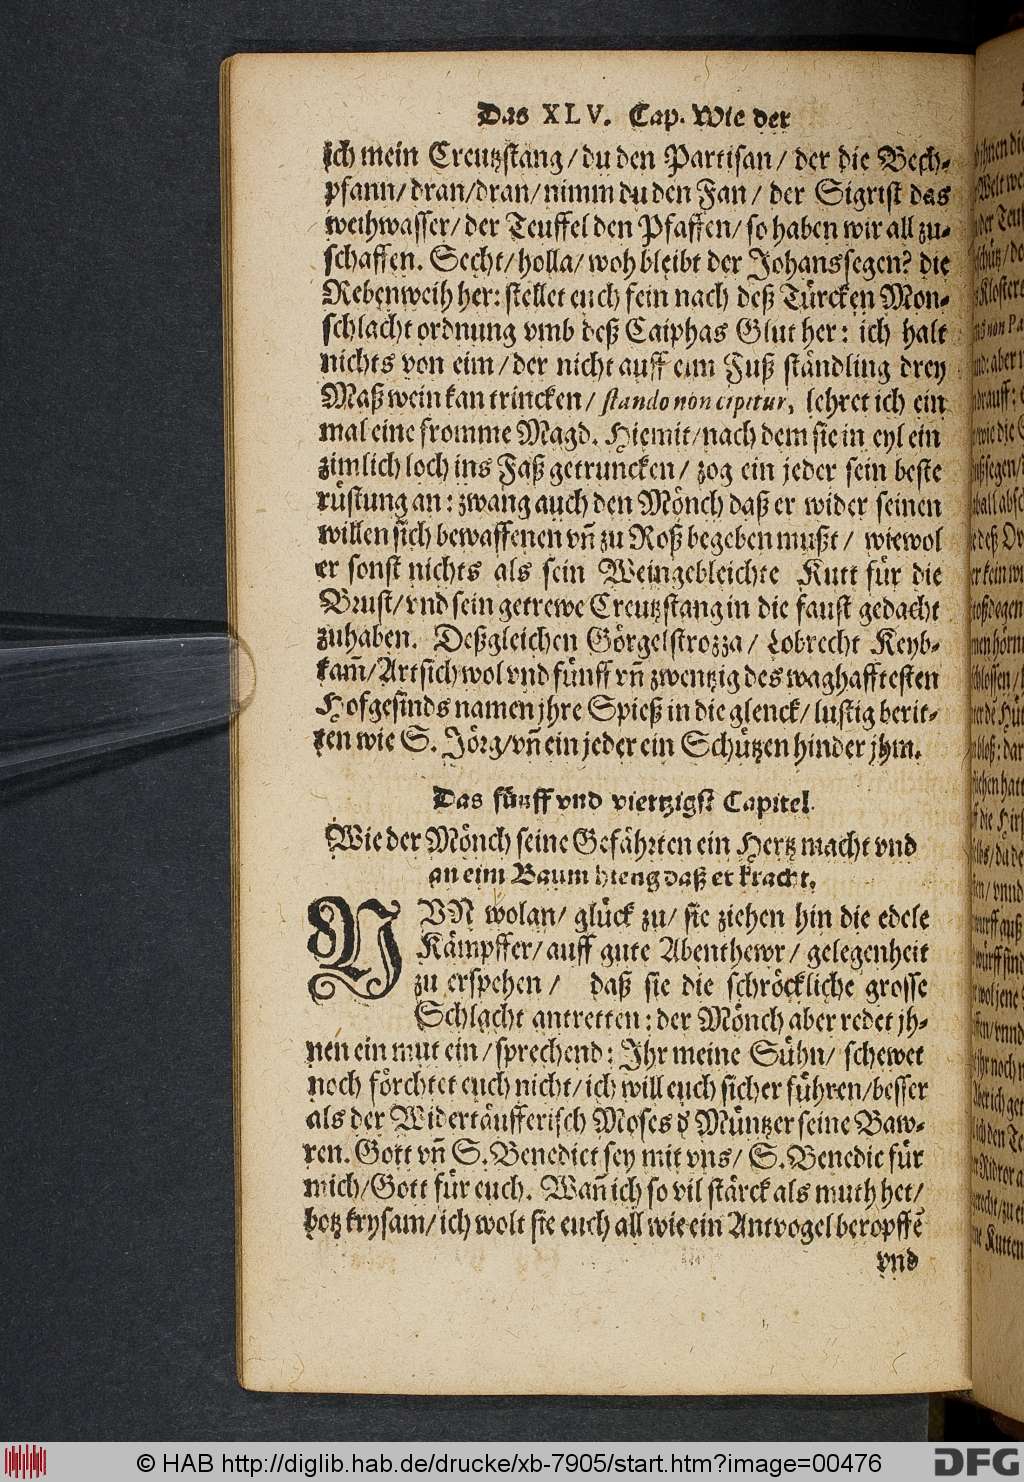 Das XLV. Cap. Wie der
ich mein Creutzstang/ du den Partisan/ der die Bech-
pfann/ dran/ dran/ nimm du den Fan/ der Sigrist das
weihwasser/ der Teuffel den Pfaffen/ so haben wir all zu-
schaffen. Secht/ holla/ woh bleibt der Johanssegen? die
Rebenweih her: stellet euch fein nach deß Türcken Mon-
schlacht ordnung vmb deß Caiphas Glut her: ich halt
nichts von eim/ der nicht auff eim Fuß ständling drey
Maß wein kan trincken/ stando non cipitur, lehret ich ein
mal eine fromme Magd. Hiemit/ nach dem sie in eyl ein
zimlich loch ins Faß getruncken/ zog ein jeder sein beste
rüstung an: zwang auch den Mönch daß er wider seinen
willen sich bewaffenen vñ zu Roß begeben mußt/ wiewol
er sonst nichts als sein Weingebleichte Kutt für die
Brust/ vnd sein getrewe Creutzstang in die faust gedacht
zuhaben. Deßgleichen Görgelstrozza/ Lobrecht Keyb-
kam̃/ Artsich wol vnd fünff vñ zwentzig des waghafftesten
Hofgesinds namen jhre Spieß in die glenck/ lustig berit-
ten wie S. Jörg/ vñ ein jeder ein Schützen hinder jhm.
Das fünff vnd viertzigst Capitel.
Wie der Mönch seine Gefährten ein Hertz macht vnd
an eim Baum hieng daß er kracht.
NVN wolan/ glück zu/ sie ziehen hin die edele
Kämpffer/ auff gute Abenthewr/ gelegenheit
zu erspehen/ daß sie die schröckliche grosse
Schlacht antretten: der Mönch aber redet jh-
nen ein mut ein/ sprechend: Ihr meine Sühn/ schewet
noch förchtet euch nicht/ ich will euch sicher führen/ besser
als der Widertäufferisch Moses d' Müntzer seine Baw-
ren. Gott vñ S. Benedict sey mit vns/ S. Benedic für
mich/ Gott für euch. Wañ ich so vil stärck als muth het/
botz krysam/ ich wolt sie euch all wie ein Antvogel beropffẽ
vnd
© HAB http://diglib.hab.de/drucke/xb-7905/start.htm?image=00476
DFG